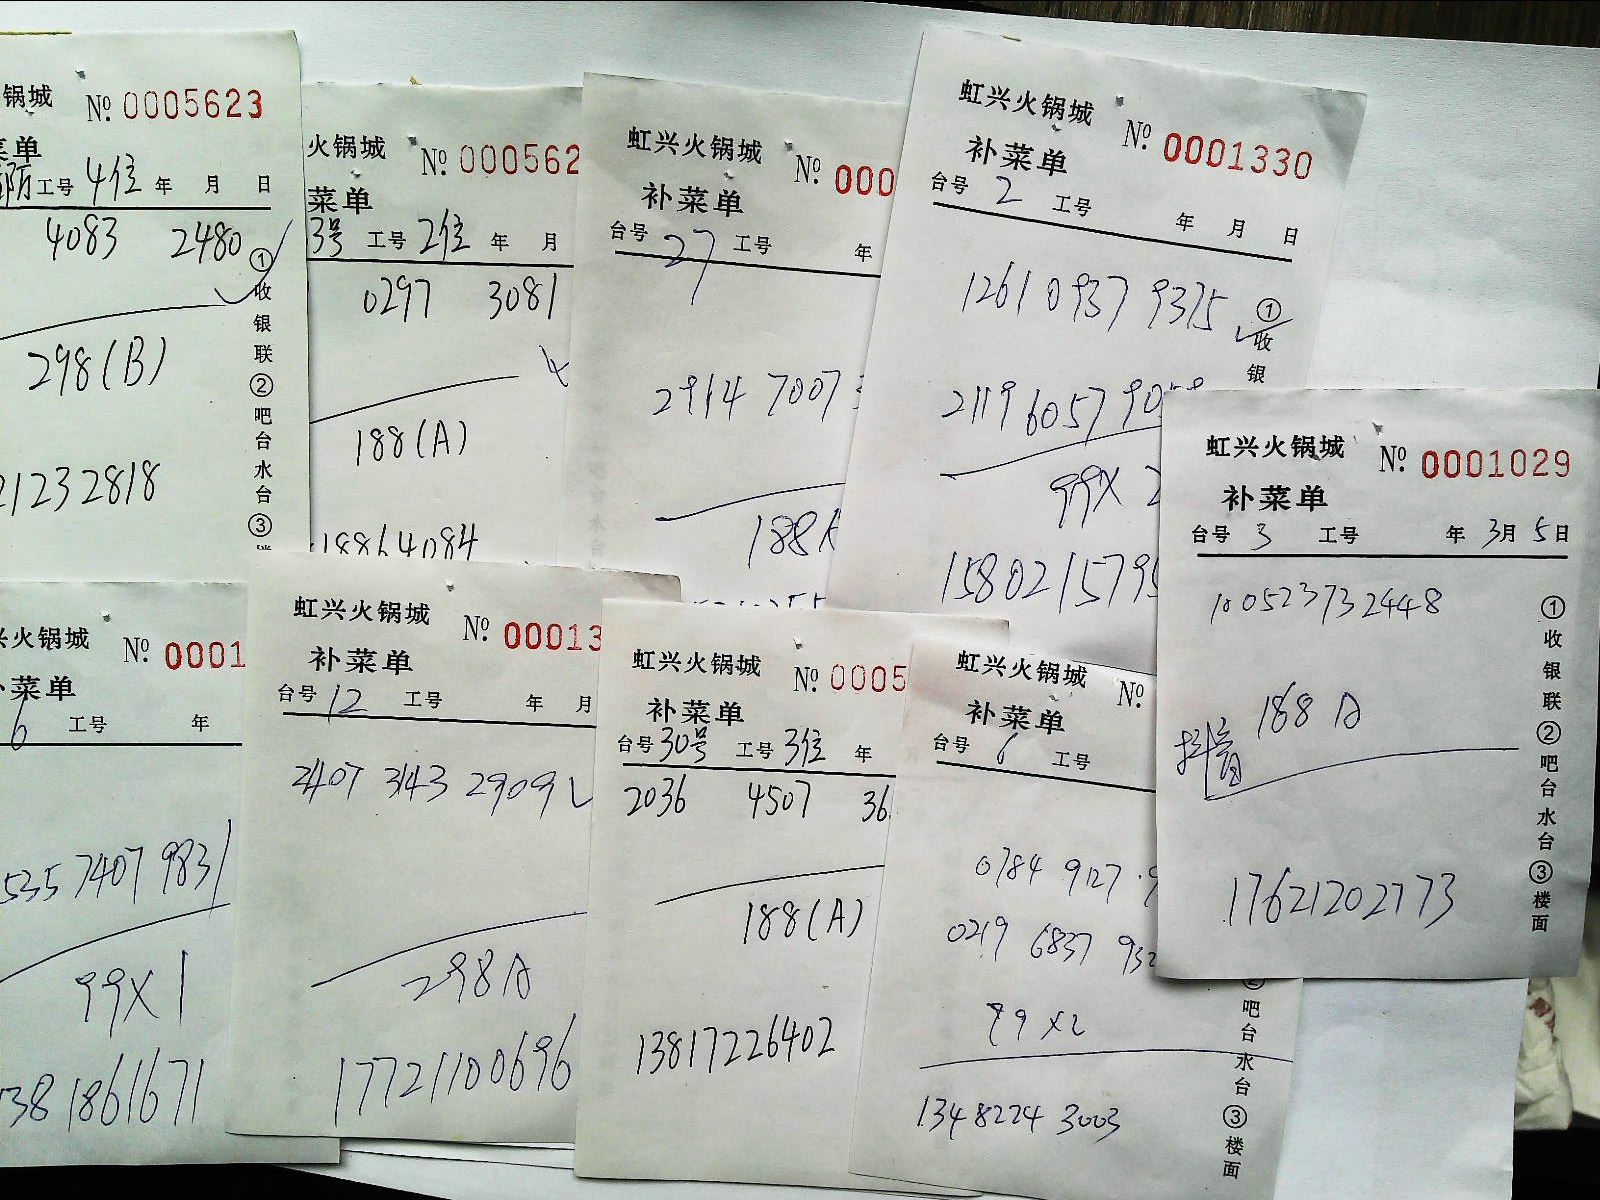 锅城 № 0005623
菜单
防 工号 4位 年 月 日
4083 2480
298(B)
21232818
①收银联②吧台水台③
火锅城 № 000562
菜单
3号 工号 2位 年 月
0297 3081
188(A)
18864084
虹兴火锅城 № 000
补菜单
台号 27 工号 年
2914 7007
188A
虹兴火锅城 № 0001330
补菜单
台号 2 工号 年 月 日
1261 0937 9375
2119 6057
99X 2
1580215795
①收银
虹兴火锅城 № 0001029
补菜单
台号 3 工号 年 3月 5日
100523732448
188 A
抖音
17621202773
①收银联②吧台水台③楼面
兴火锅城 № 0001
补菜单
6 工号 年
535 7407 9831
99X1
381861671
虹兴火锅城 № 00013
补菜单
台号 12 工号 年 月
2407 3143 2909
298A
17721100696
虹兴火锅城 № 0005
补菜单
台号 30号 工号 3位 年
2036 4507 36
188(A)
13817226402
虹兴火锅城 №
补菜单
台号 6 工号
0784 9127
0219 6837 932
99 X2
1348224 3003
②吧台水台③楼面